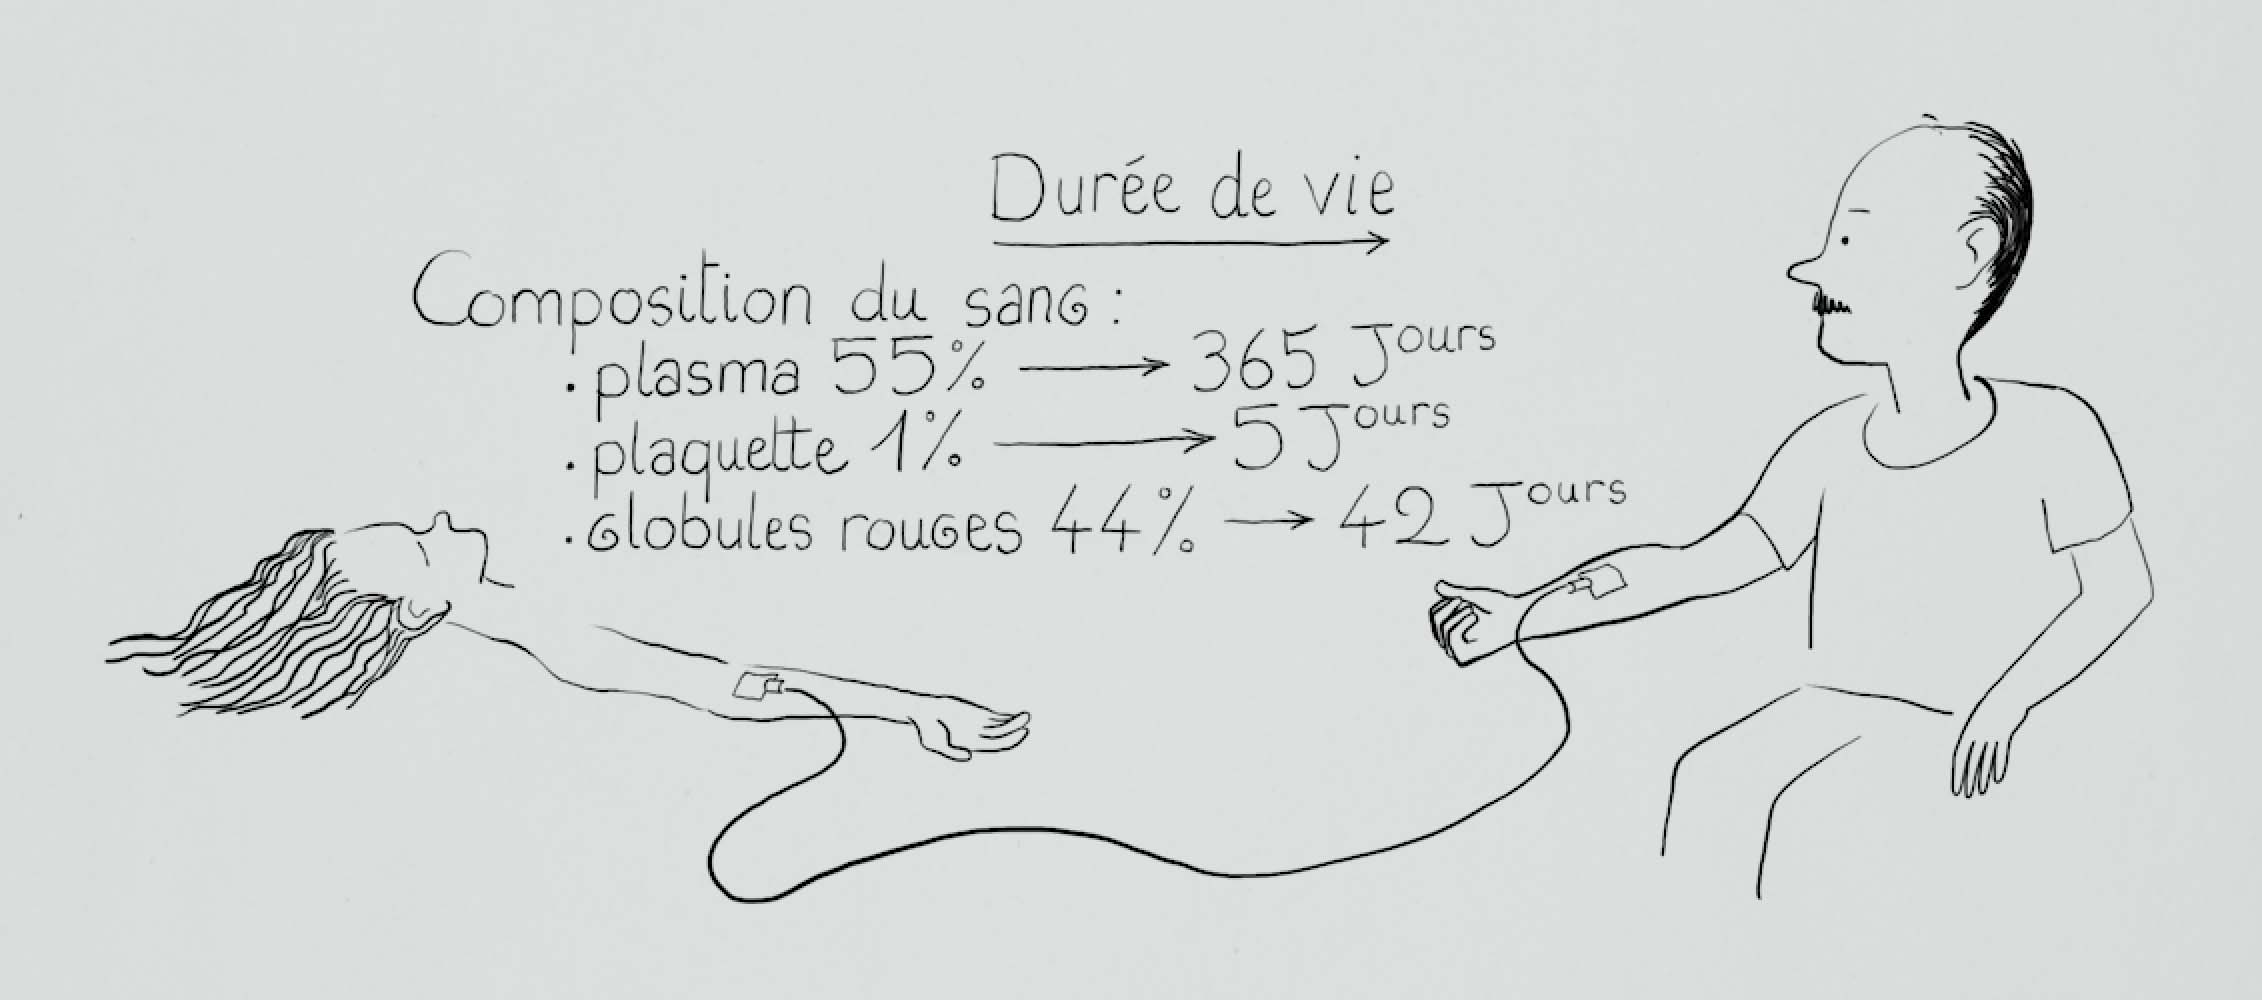 Durée de vie
Composition du sang :
. plasma 55% → 365 Jours
. plaquette 1% → 5 Jours
. globules rouges 44% → 42 Jours